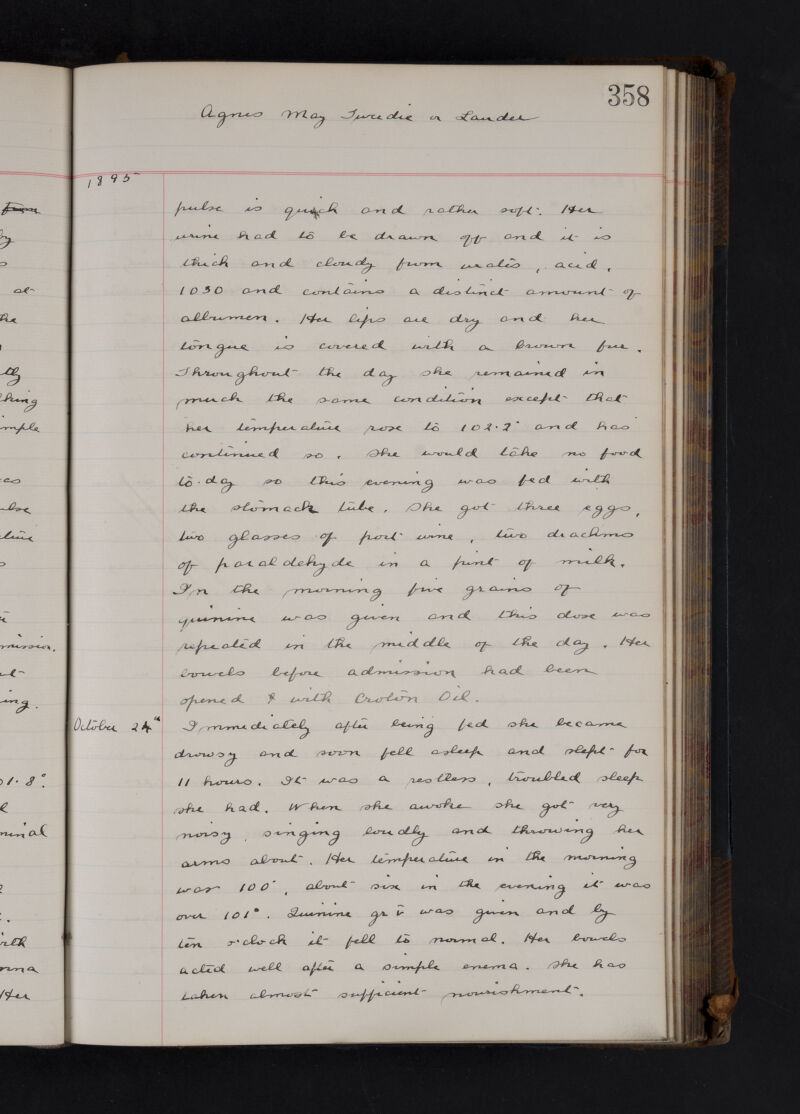 358
Agnes May Tweedie or Lauder
1895
pulse is quick and rather soft. Her
urine had to be drawn off and it is
thick and cloudy from urates, acid,
1030 and contains a distinct amount of
albumen. Her lips are dry and her
tongue is covered with a brown fur.
Throughout the day she remained in
much the same condition except that
her temperature rose to 102.2° and has
continued so. She would take no food
to-day so this evening was fed with
the stomach tube. She got three eggs,
two glasses of port wine, two drachms
of paraldehyde in a pint of milk.
In the morning five grains of
quinine was given and this dose was
repeated in the middle of the day. Her
bowels before admission had been
opened & with Croton Oil.
October 24th Immediately after being fed she became
drowsy and soon fell asleep and slept for
11 hours. It was a restless, troubled sleep
she had. When she awoke she got very
noisy, singing loudly and throwing her
arms about. Her temperature in the morning
was 100°, about six in the evening it was
over 101°. Quinine gr v was given and by
ten o'clock it fell to normal. Her bowels
acted well after a simple enema. She has
taken almost sufficient nourishment.